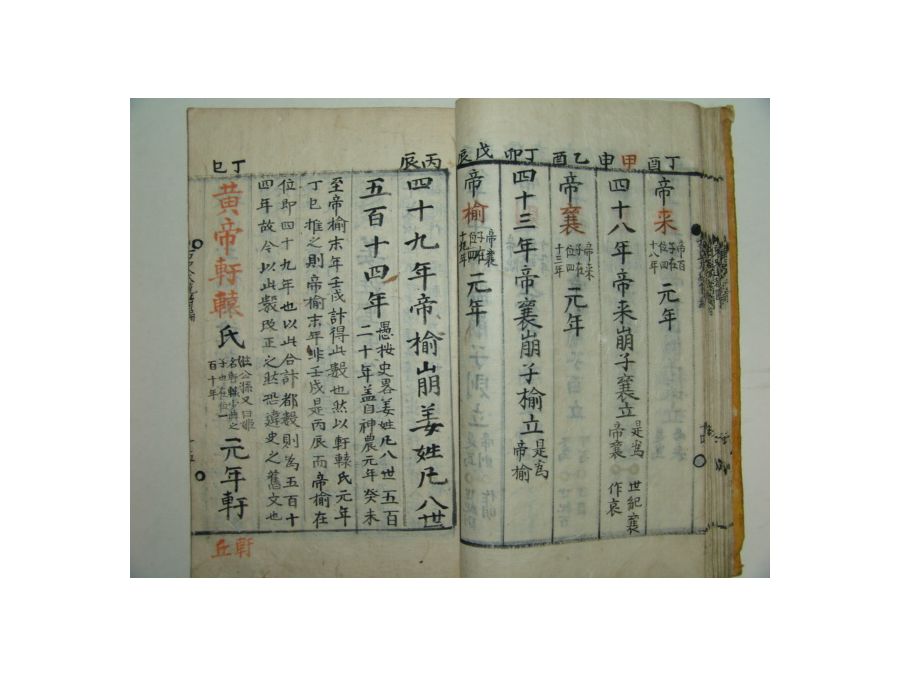 丁酉
帝来 帝百子在位四十八年 元年
甲申
四十八年帝来崩子襄立 是為帝襄 世紀襄作哀
乙酉
帝襄 帝来子在位四十三年 元年
丁卯
四十三年帝襄崩子榆立 是為帝榆
戊辰
帝榆 帝襄子在位四十九年 元年
丙辰
四十九年帝榆崩姜姓凡八世
五百十四年 愚按史畧姜姓凡八世五百二十年盖自神農元年癸未
至帝榆末年壬戌計得此数也然以軒轅氏元年
丁巳推之則帝榆末年非壬戌是丙辰而帝榆在
位即四十九年也以此合計都数則為五百十
四年故今以此数改正之然恐違史之舊文也
丁巳
黄帝軒轅氏 姓公孫又曰姬名軒轅小典之子也在位一百十年 元年軒
軒丘